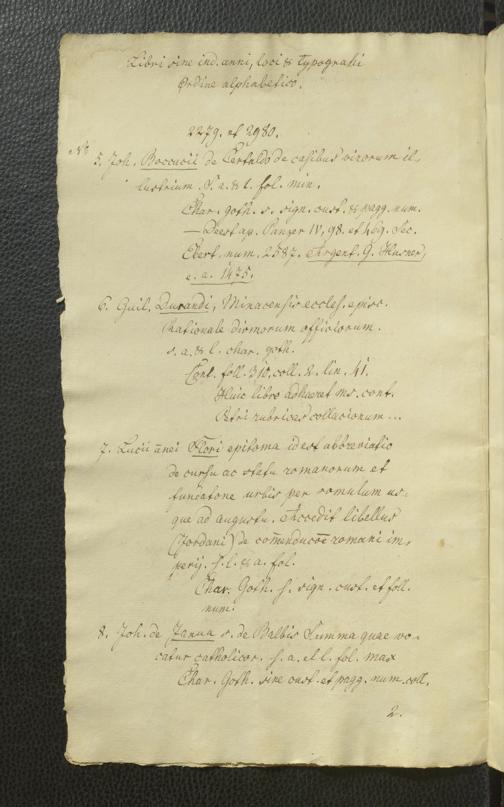 Libri sine ind. anni, loci & typografii
Ordine alphabetico.
2279. et 2980.
5. Joh. Boccacii de Certaldo de casibus virorum il-
lustrium. S. a. & l. fol. min.
Char. goth. s. sign. cust. & pagg. num.
— Deest ap. Panzer IV, 98. et seq. Sec.
Ebert. num. 2587. Argent. G. Husner,
c. a. 1475.
6. Guil. Durandi, Minacensis eccles. episc.
Rationale divinorum officiorum.
s. a. & l. char. goth.
Cont. foll. 310. coll. 2. lin. 41.
Huic libro adhaeret ms. cont.
Petri rubrices collacionum ...
7. Lucii ānei Flori epitoma id est abbreviatio
de cursu ac statu romanorum et
funcatone urbis per romulum us-
que ad augustu. Accedit libellus
(Jordani) de romani im-
perij. s. l. & a. fol.
Char. Goth. s. sign. cust. et foll.
num.
8. Joh. de Janua s. de Balbis Summa quae vo-
catur catholicon. s. a. et l. fol. max
Char. Goth. sine cust. et pagg. num. coll.
2.